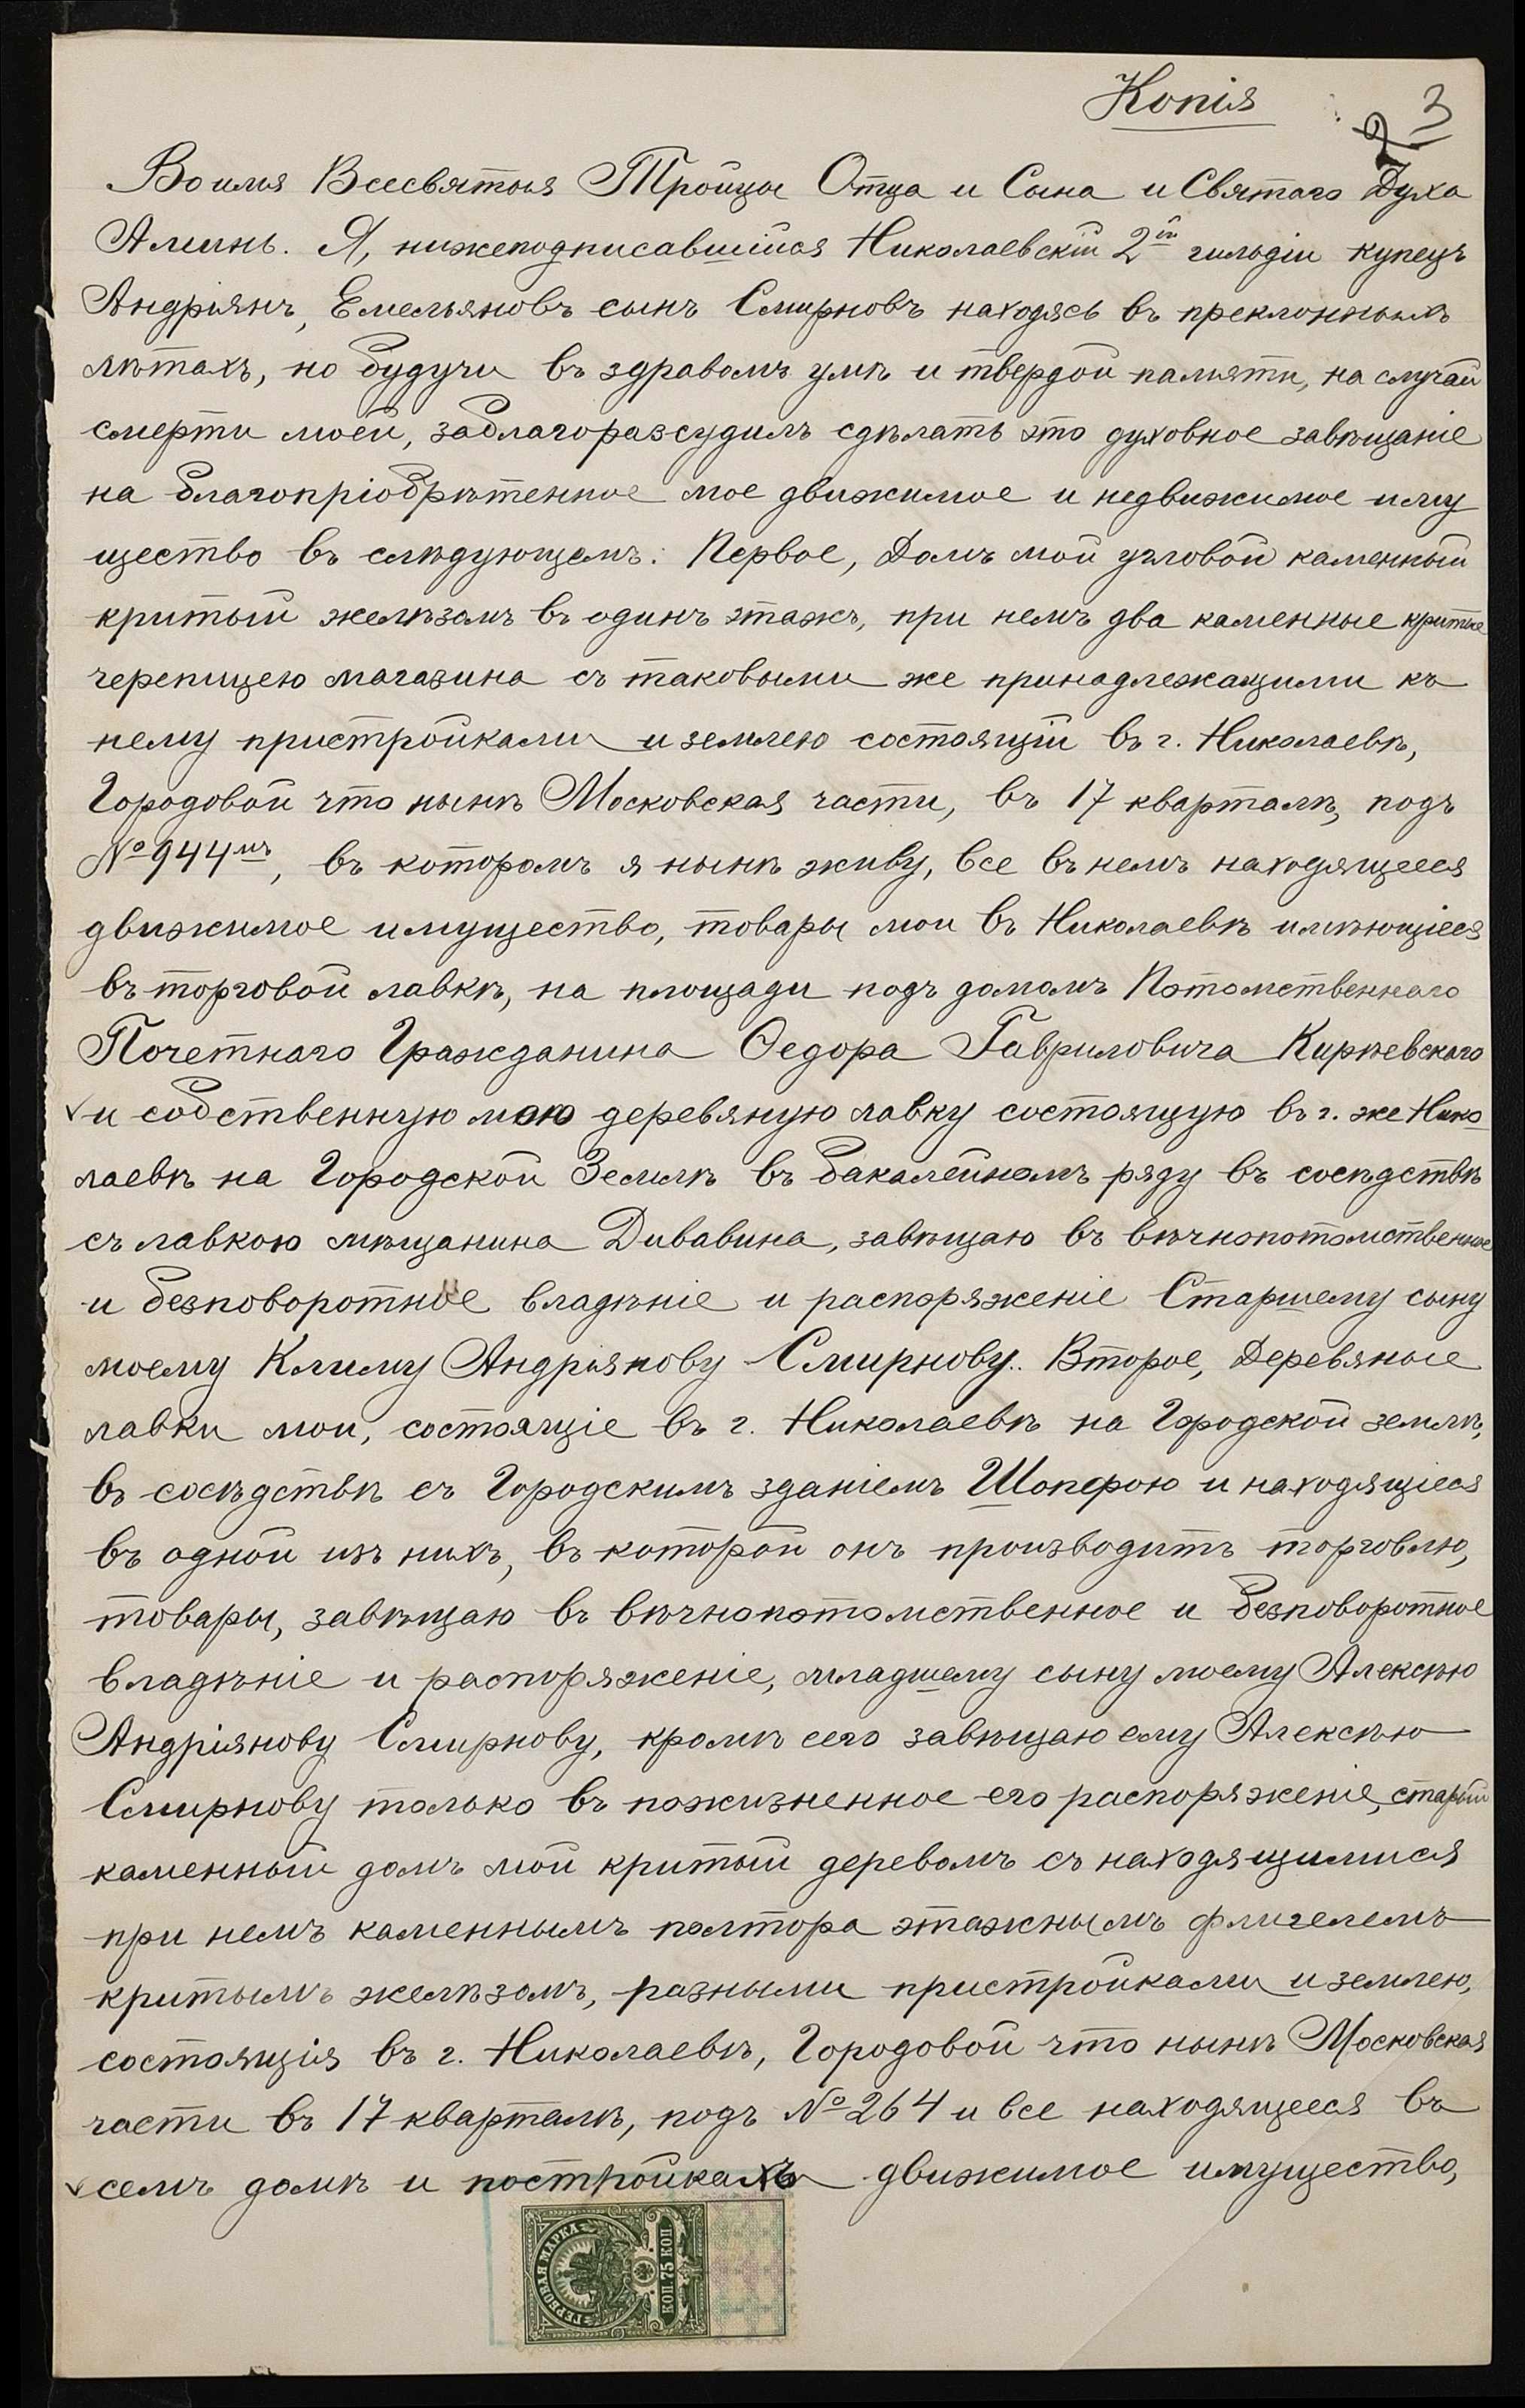 Копія
2 3
Во имя Всесвятыя Тройцы Отца и Сына и Святаго Духа
Аминь. Я, нижеподписавшійся Николаевскій 2й гильдіи купецъ
Андріянъ, Емельяновъ сынъ Смирновъ находясь въ преклонныхъ
лѣтахъ, но будучи въ здравомъ умѣ и твердой памяти, на случай
смерти моей, заблагоразсудилъ сдѣлать это духовное завѣщаніе
на благопріобрѣтенное мое движимое и недвижимое иму
щество въ слѣдующемъ: Первое, Домъ мой угловой каменный
критый желѣзомъ въ одинъ этажъ, при немъ два каменные критые
черепицею магазина съ таковыми же принадлежащими къ
нему пристройками и землею состоящій въ г. Николаевѣ,
Городовой что нынѣ Московская части, въ 17 кварталѣ, подъ
№ 944мъ, въ которомъ я нынѣ живу, все въ немъ находящееся
движимое имущество, товары мои въ Николаевѣ имѣющіеся
въ торговой лавкѣ, на площади подъ домомъ Потомственнаго
Почетнаго Гражданина Ѳедора Гавриловича Кирѣевскаго
и собственную мою деревяную лавку состоящую въ г. же Нико
лаевѣ на Городской Землѣ въ бакалейномъ ряду въ сосѣдствѣ
съ лавкою мѣщанина Дивавина, завѣщаю въ вѣчнопотомственное
и безповоротное владѣніе и распоряженіе Старшему сыну
моему Климу Андріянову Смирнову. Второе, Деревяные
лавки мои, состоящіе въ г. Николаевѣ на Городской землѣ,
въ сосѣдствѣ съ Городскимъ зданіемъ Шоперою и находящіеся
въ одной изъ нихъ, въ которой онъ производитъ торговлю,
товары, завѣщаю въ вѣчнопотомственное и безповоротное
владѣніе и распоряженіе, младшему сыну моему Алексѣю
Андріянову Смирнову, кромѣ сего завѣщаю ему Алексѣю
Смирнову только въ пожизненное его распоряженіе, старый
каменный домъ мой критый деревомъ съ находящимися
при немъ каменнымъ полтора этажнымъ флигелемъ
критымъ желѣзомъ, разными пристройками и землею,
состоящія въ г. Николаевѣ, Городовой что нынѣ Московская
части въ 17 кварталѣ, подъ № 264 и все находящееся въ
семъ домѣ и постройкахъ движимое имущество,
ГЕРБОВАЯ МАРКА
КОП 75 КОП